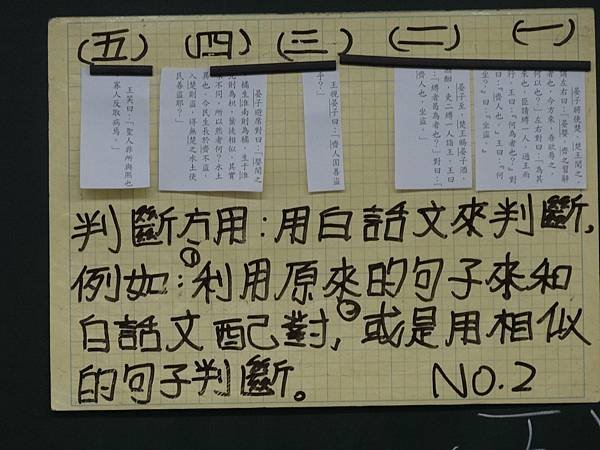 (五) (四) (三) (二) (一)
晏子將使楚。楚王聞之,
謂左右曰:「晏嬰,齊之習辭
者也,今方來,吾欲辱之,
何以也?」左右對曰:「為其
來也,臣請縛一人,過王而
行,王曰:『何為者也?』對
曰:『齊人也。』王曰:『何
坐?』曰:『坐盜。』
晏子至,楚王賜晏子酒,
酒酣,吏二縛一人詣王。王曰
「縛者曷為者也?」對曰:「
齊人也,坐盜。」
王視晏子曰:「齊人固善盜
乎?」
晏子避席對曰:「嬰聞之,
橘生淮南則為橘,生于淮
北則為枳,葉徒相似,其實
味不同。所以然者何?水土
異也。今民生長於齊不盜,
入楚則盜,得無楚之水土使
民善盜耶?」
王笑曰:「聖人非所與熙也
寡人反取病焉。」
判斷方用:用白話文來判斷,
例如:①利用原來的句子來和
白話文配對,②或是用相似
的句子判斷。 NO.2